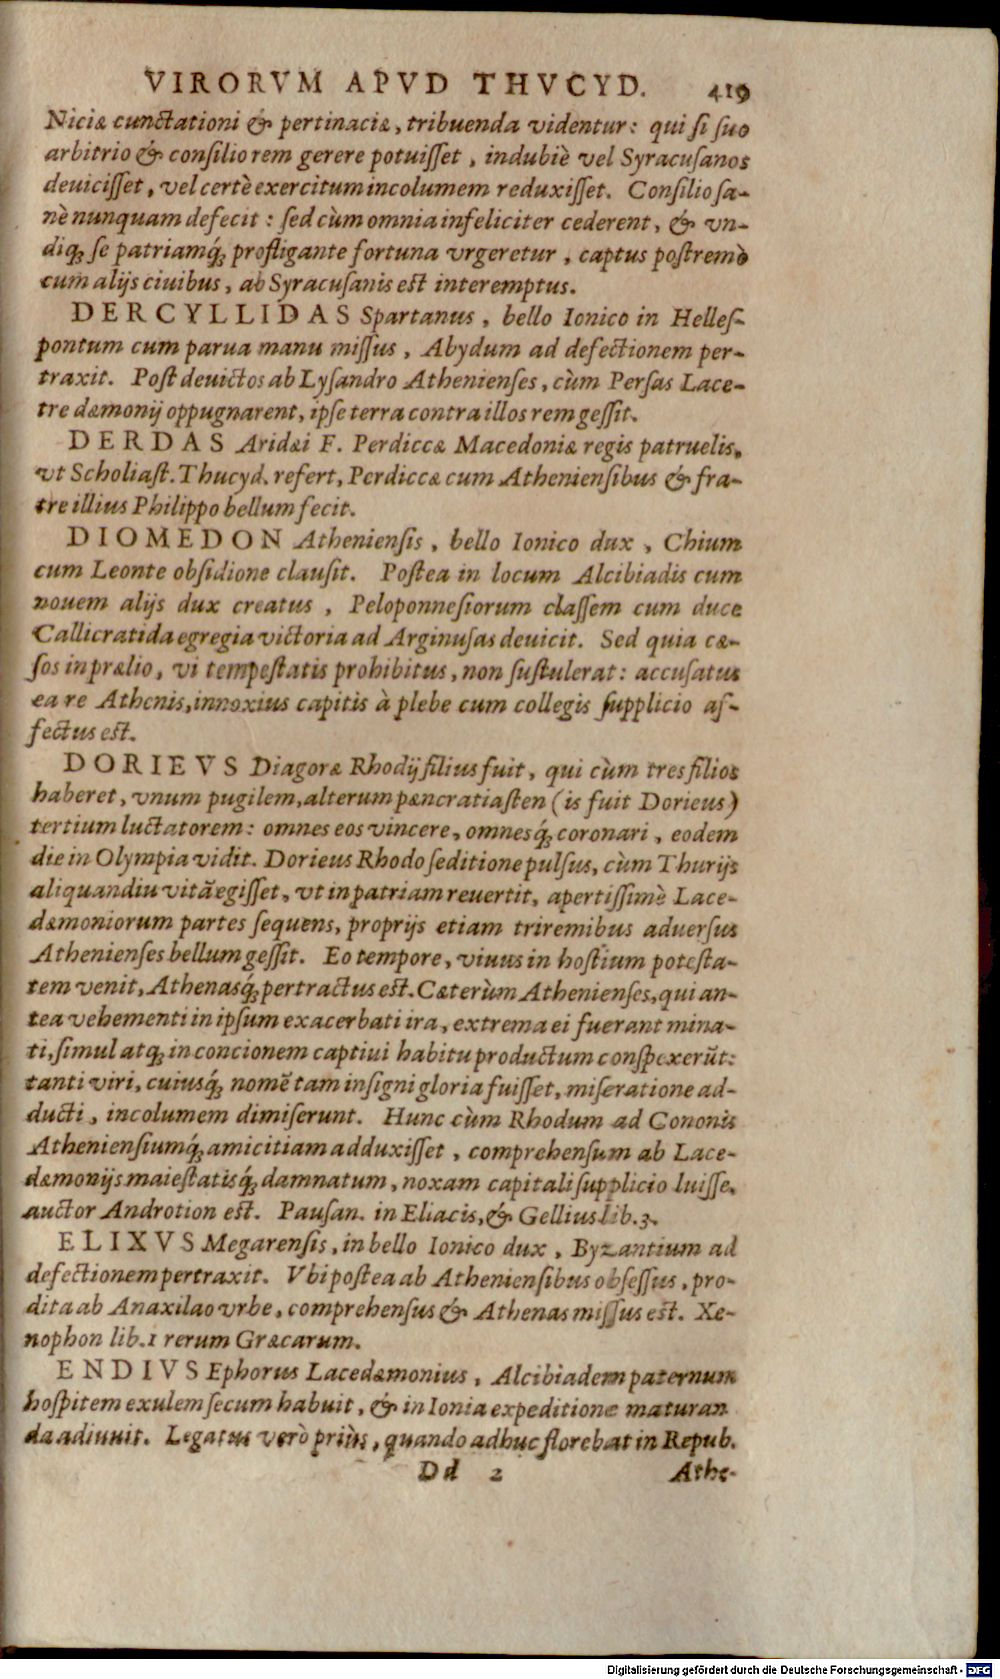 VIRORVM APVD THVCYD. 419
Niciæ cunctationi & pertinaciæ, tribuenda videntur: qui si suo
arbitrio & consilio rem gerere potuisset, indubiè vel Syracusanos
deuicisset, vel certè exercitum incolumem reduxisset. Consilio sa-
nè nunquam defecit: sed cùm omnia infeliciter cederent, & vn-
diq; se patriamq́; profligante fortuna vrgeretur, captus postremò
cum alijs ciuibus, ab Syracusanis est interemptus.
DERCYLLIDAS Spartanus, bello Ionico in Helles-
pontum cum parua manu missus, Abydum ad defectionem per-
traxit. Post deuictos ab Lysandro Athenienses, cùm Persas Lace-
tre dæmonij oppugnarent, ipse terra contra illos rem gessit.
DERDAS Aridæi F. Perdiccæ Macedoniæ regis patruelis,
vt Scholiast. Thucyd. refert, Perdiccæ cum Atheniensibus & fra-
tre illius Philippo bellum fecit.
DIOMEDON Atheniensis, bello Ionico dux, Chium
cum Leonte obsidione clausit. Postea in locum Alcibiadis cum
nouem alijs dux creatus, Peloponnesiorum classem cum duce
Callicratida egregia victoria ad Arginusas deuicit. Sed quia cæ-
sos in prælio, vi tempestatis prohibitus, non sustulerat: accusatus
ea re Athenis, innoxius capitis à plebe cum collegis supplicio af-
fectus est.
DORIEVS Diagoræ Rhodij filius fuit, qui cùm tres filios
haberet, vnum pugilem, alterum pancratiasten (is fuit Dorieus)
tertium luctatorem: omnes eos vincere, omnesq́; coronari, eodem
die in Olympia vidit. Dorieus Rhodo seditione pulsus, cùm Thurijs
aliquandiu vitã egisset, vt in patriam reuertit, apertissimè Lace-
dæmoniorum partes sequens, proprijs etiam triremibus aduersus
Athenienses bellum gessit. Eo tempore, viuus in hostium potesta-
tem venit, Athenasq́; pertractus est. Cæterùm Athenienses, qui an-
tea vehementi in ipsum exacerbati ira, extrema ei fuerant mina-
ti, simul atq; in concionem captiui habitu productum conspexerũt:
tanti viri, cuiusq́; nomẽ tam insigni gloria fuisset, miseratione ad-
ducti, incolumem dimiserunt. Hunc cùm Rhodum ad Cononis
Atheniensiumq́; amicitiam adduxisset, comprehensum ab Lace-
dæmonijs maiestatisq́; damnatum, noxam capitali supplicio luisse,
auctor Androtion est. Pausan. in Eliacis, & Gellius lib. 3.
ELIXVS Megarensis, in bello Ionico dux, Byzantium ad
defectionem pertraxit. Vbi postea ab Atheniensibus obsessus, pro-
dita ab Anaxilao vrbe, comprehensus & Athenas missus est. Xe-
nophon lib. 1 rerum Græcarum.
ENDIVS Ephorus Lacedæmonius, Alcibiadem paternum
hospitem exulem secum habuit, & in Ionia expeditione maturan
da adiuuit. Legatus verò priùs, quando adhuc florebat in Repub.
Dd 2 Athe-
Digitalisierung gefördert durch die Deutsche Forschungsgemeinschaft - DFG